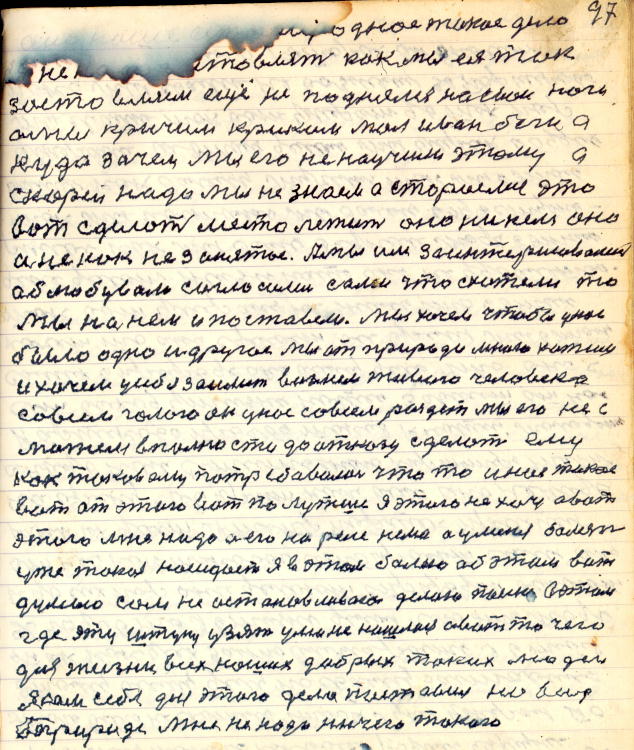 97
одное такое дело
не как мы ея так
заставляем еще не поднялся на свои ноги
а мы кричим криком мол иван беги а
куда зачем мы его не научили этому а
скорей надо мы не знаем а стараемся это
вот сделат место лежит оно никем оно
а не как не занятое. А мы им заинтерисовалис
согласили сами что схотели то
мы на нем и поставели. мы хочем чтобы у нас
было одно и другое мы от природы много хотим
и хочем у ней взайми возмем живого человека
совсем голого он у нас совсем раздет мы его не с
можем вполности до отказу сделат ему
как таковому потребавалос что то иное такое
вот от этого вот по лутше я этого не хочу а вот
этого мне надо а его на реке нема а у меня болят
уже такая я в этом балею об этом вот
думаю сам не останавливаюс делаю В этом
где эту штуку узят у мене нашлас а вот то чего
для жизни всех наших добрых таких людей
Я сам себя для этого дела поставил но веть
природе мне не надо ничего такого